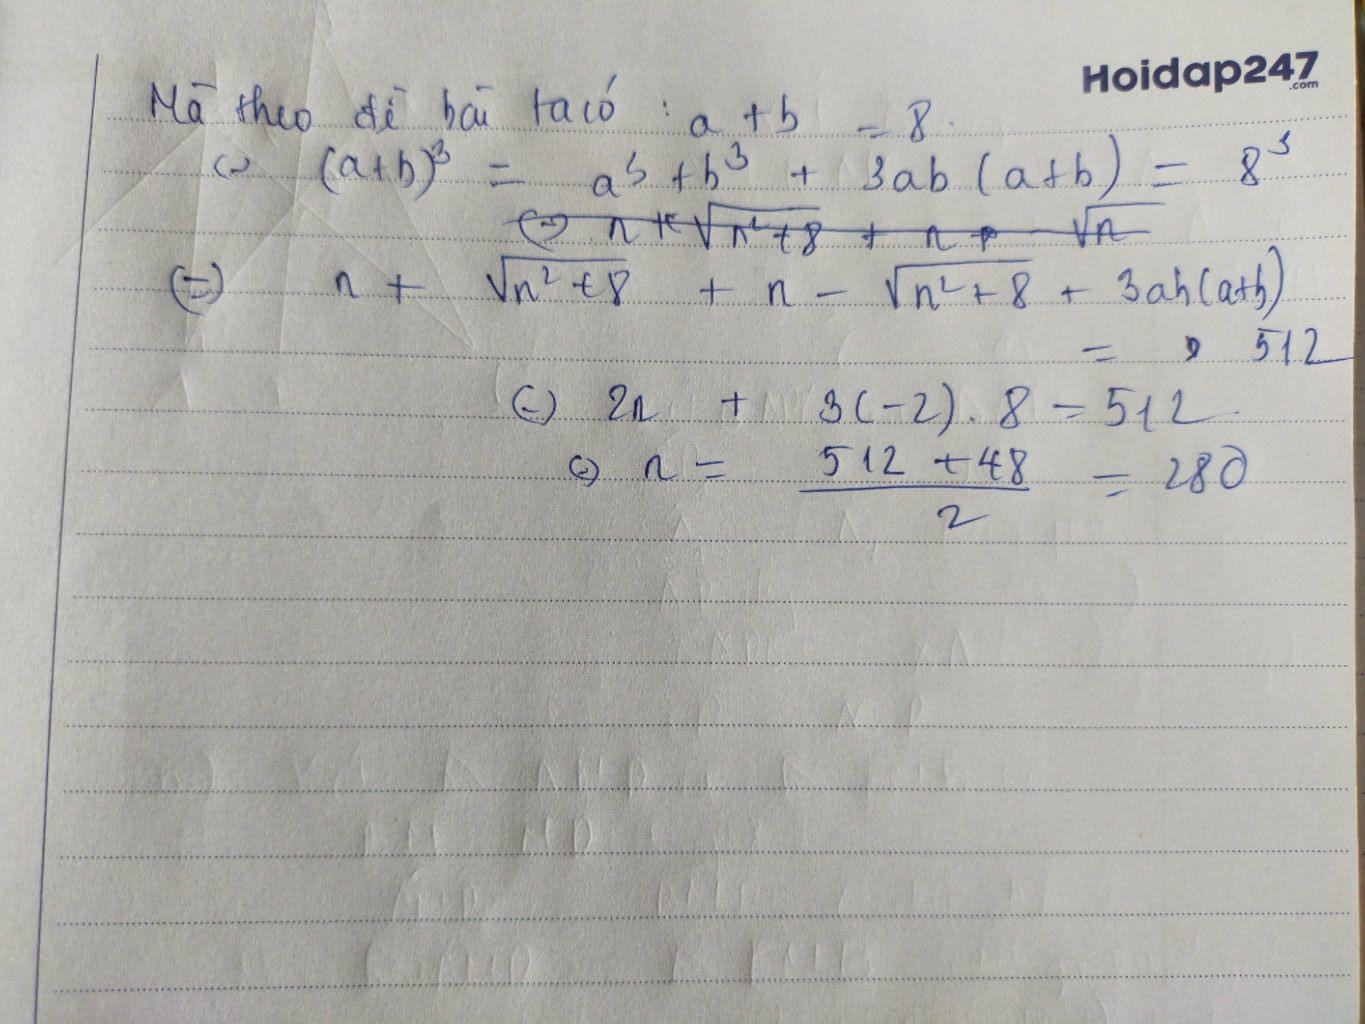 Hoidap247
.com
Mà theo đề bài ta có : a + b = 8.
<=> (a+b)³ = a³ + b³ + 3ab (a+b) = 8³
<=> n + √(n² + 8) + n - √(n² + 8) + 3ab (a+b)
= 512
<=> 2n + 3(-2). 8 = 512
<=> n = (512 + 48)/2 = 280